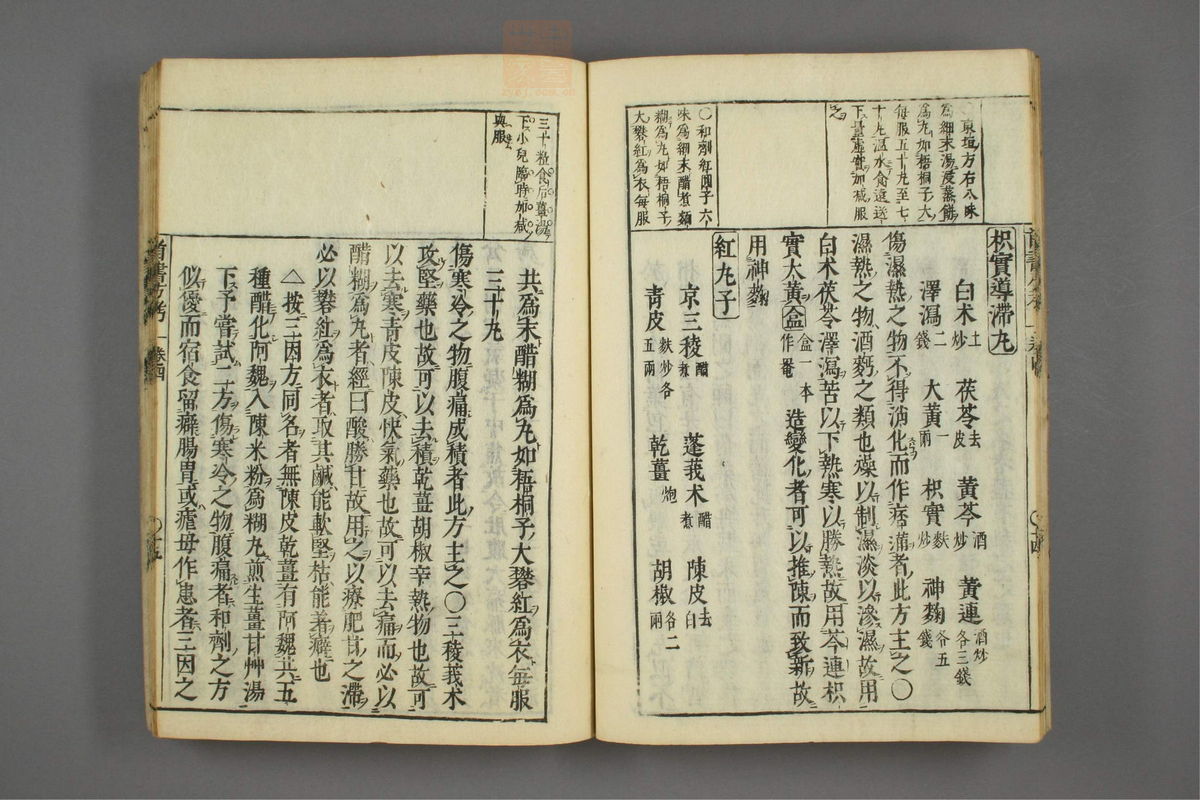 ○東垣方右八味
為細末湯浸蒸餅
為丸如梧桐子大
每服五十丸至七
十丸溫水食遠送
下量虛實加減服
之
○和劑紅圓子六
味為細末醋煮麪
糊為丸如梧桐子
大礬紅為衣每服
枳實導滯丸
白朮土炒 茯苓去皮 黃芩酒炒 黃連酒炒各三錢
澤瀉二錢 大黃一兩 枳實麩炒 神麴各五錢
傷濕熱之物不得消化而作痞滿者此方主之○
濕熱之物酒麪之類也燥以制濕淡以滲濕故用
白朮茯苓澤瀉苦以下熱寒以勝熱故用芩連枳
實大黃盒盒一本作罨造變化者可以推陳而致新故
用神麴
紅丸子
京三稜醋煮 蓬莪朮醋煮 陳皮去白
青皮麩炒各五兩 乾薑炮 胡椒各二兩
三十粒食后薑湯
下小兒臨時加減
與服
共為末醋糊為丸如梧桐子大礬紅為衣每服
三十丸
傷寒冷之物腹痛成積者此方主之○三稜莪朮
攻堅藥也故可以去積乾薑胡椒辛熱物也故可
以去寒青皮陳皮快氣藥也故可以去痛而必以
醋糊為丸者經曰酸勝甘故用之以療肥甘之滯
必以礬紅為衣者取其鹹能軟堅枯能著癖也
△按三因方同名者無陳皮乾薑有阿魏共五
種醋化阿魏入陳米粉為糊丸煎生薑甘艸湯
下予嘗試二方傷寒冷之物腹痛者和劑之方
似優而宿食留癖腸胃或瘧母作患者三因之